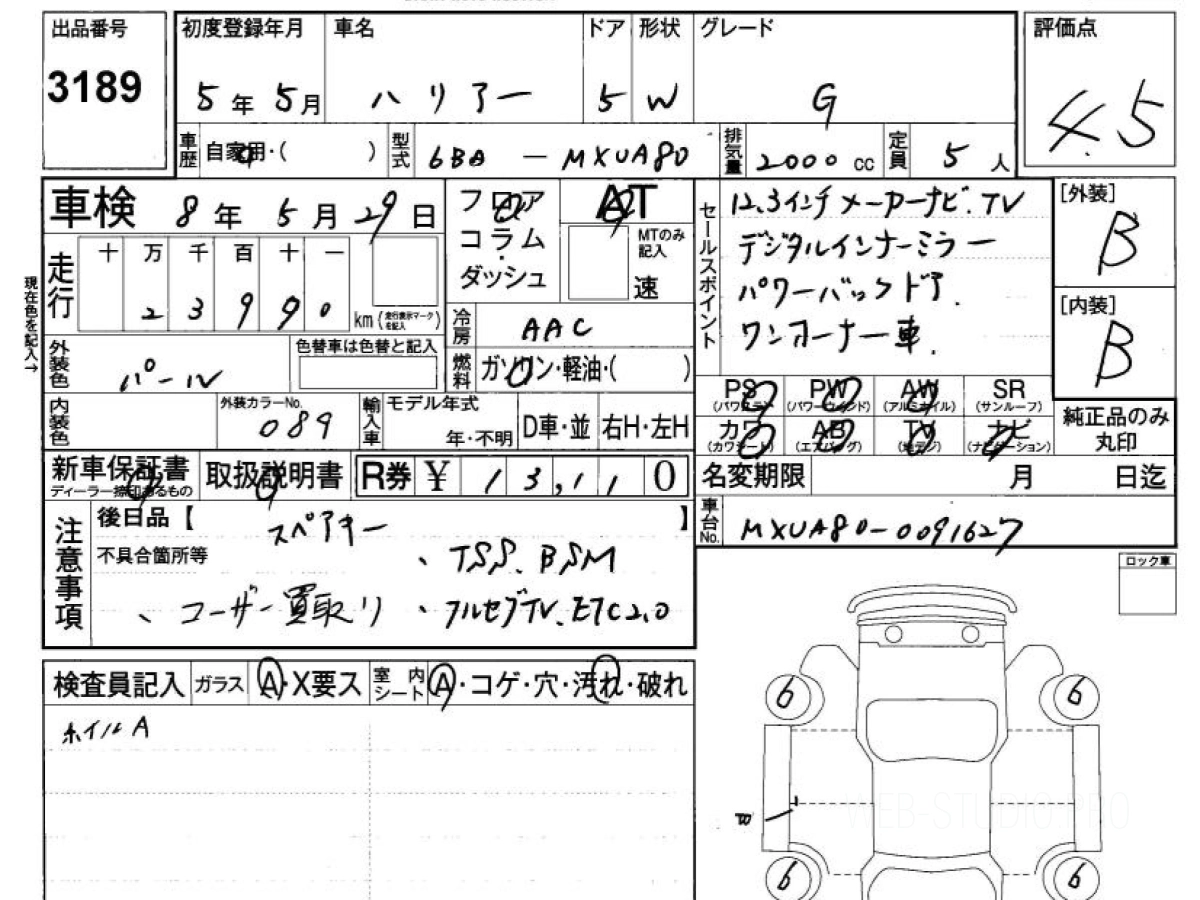 出品番号 初度登録年月 車名 ドア 形状 グレード 評価点
3189 5年 5月 ハリアー 5 W G 4.5
車歴 自家用・( ) 型式 6BA — MXUA80 排気量 2000 cc 定員 5 人
車検 8年 5月 29日 フロア コラム・ダッシュ AT MTのみ記入 速
セールスポイント
12.3インチメーカーナビ.TV
デジタルインナーミラー
パワーバックドア.
ワンオーナー車.
[外装]
B
[内装]
B
現在色を記入→
走行 十 万 千 百 十 一
2 3 9 9 0 km (走行表示マークを記入)
冷房 AAC
外装色 パール 色替車は色替と記入
燃料 ガソリン・軽油・( )
PS (パワステ) PW (パワーウインド) AW (アルミホイル) SR (サンルーフ)
カワ (カワシート) AB (エアバッグ) TV (地デジ) ナビ (ナビゲーション)
純正品のみ丸印
内装色 外装カラーNo. 089 輸入車 モデル年式 年・不明 D車・並 右H・左H
新車保証書 ディーラー捺印あるもの 取扱説明書 R券 ¥ 13,110
名変期限 月 日迄
車台No. MXUA80-0091627
注意事項
後日品【 スペアキー 】
不具合箇所等 、TSS.BSM
、ユーザー買取り 、フルセグTV.ETC2.0
ロック車
検査員記入 ガラス A・X要ス 室内シート A・コゲ・穴・汚れ・破れ
ホイルA
6 6
WEB-STUDIO.PRO
6 6